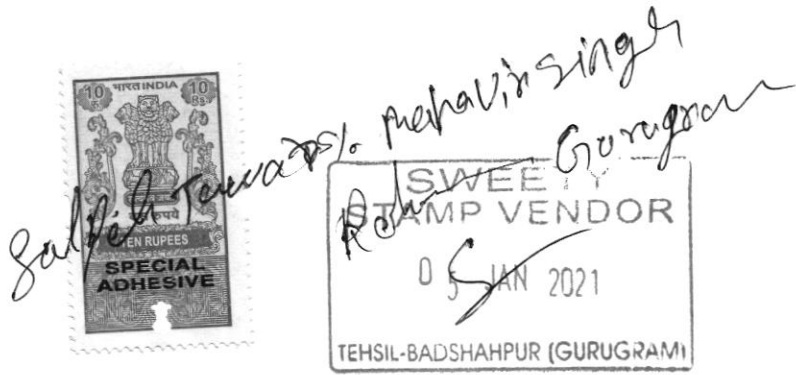 10 भारत INDIA 10
रु. Rs.
रुपये
TEN RUPEES
SPECIAL
ADHESIVE
S/o Mahavir Singh
Gurugram
SWEETY
STAMP VENDOR
05 JAN 2021
TEHSIL-BADSHAHPUR (GURUGRAM)